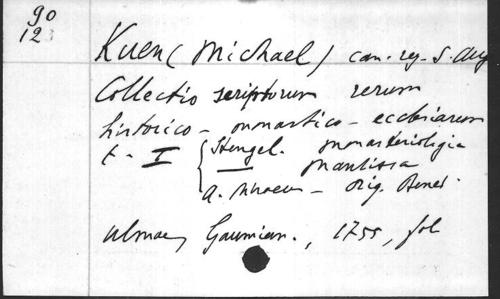 90
12
Kuen (Michael) can. reg. S. Aug
Collectio scriptorum rerum
historico - monastico - ecclesiarum
t. I Stengel. monasteriologia
— mantissa
A. - orig. Bened.
ulmae, Gaumian., 1755, fol